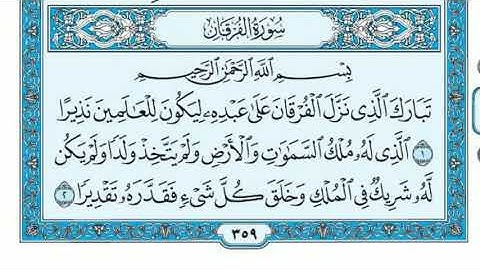 سُورَةُ الفُرْقَانِ
بِسْمِ اللَّهِ الرَّحْمَٰنِ الرَّحِيمِ
تَبَارَكَ ٱلَّذِى نَزَّلَ ٱلْفُرْقَانَ عَلَىٰ عَبْدِهِۦ لِيَكُونَ لِلْعَٰلَمِينَ نَذِيرًا
١ ٱلَّذِى لَهُۥ مُلْكُ ٱلسَّمَٰوَٰتِ وَٱلْأَرْضِ وَلَمْ يَتَّخِذْ وَلَدًا وَلَمْ يَكُن
لَّهُۥ شَرِيكٌ فِى ٱلْمُلْكِ وَخَلَقَ كُلَّ شَىْءٍ فَقَدَّرَهُۥ تَقْدِيرًا ٢
٣٥٩